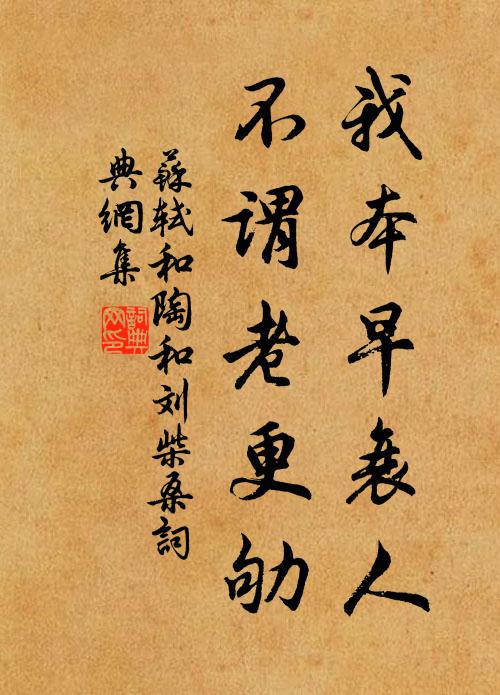 我本早衰人
不谓老更劬
蘇軾和陶和刘柴桑詞
典網集
詞典网印